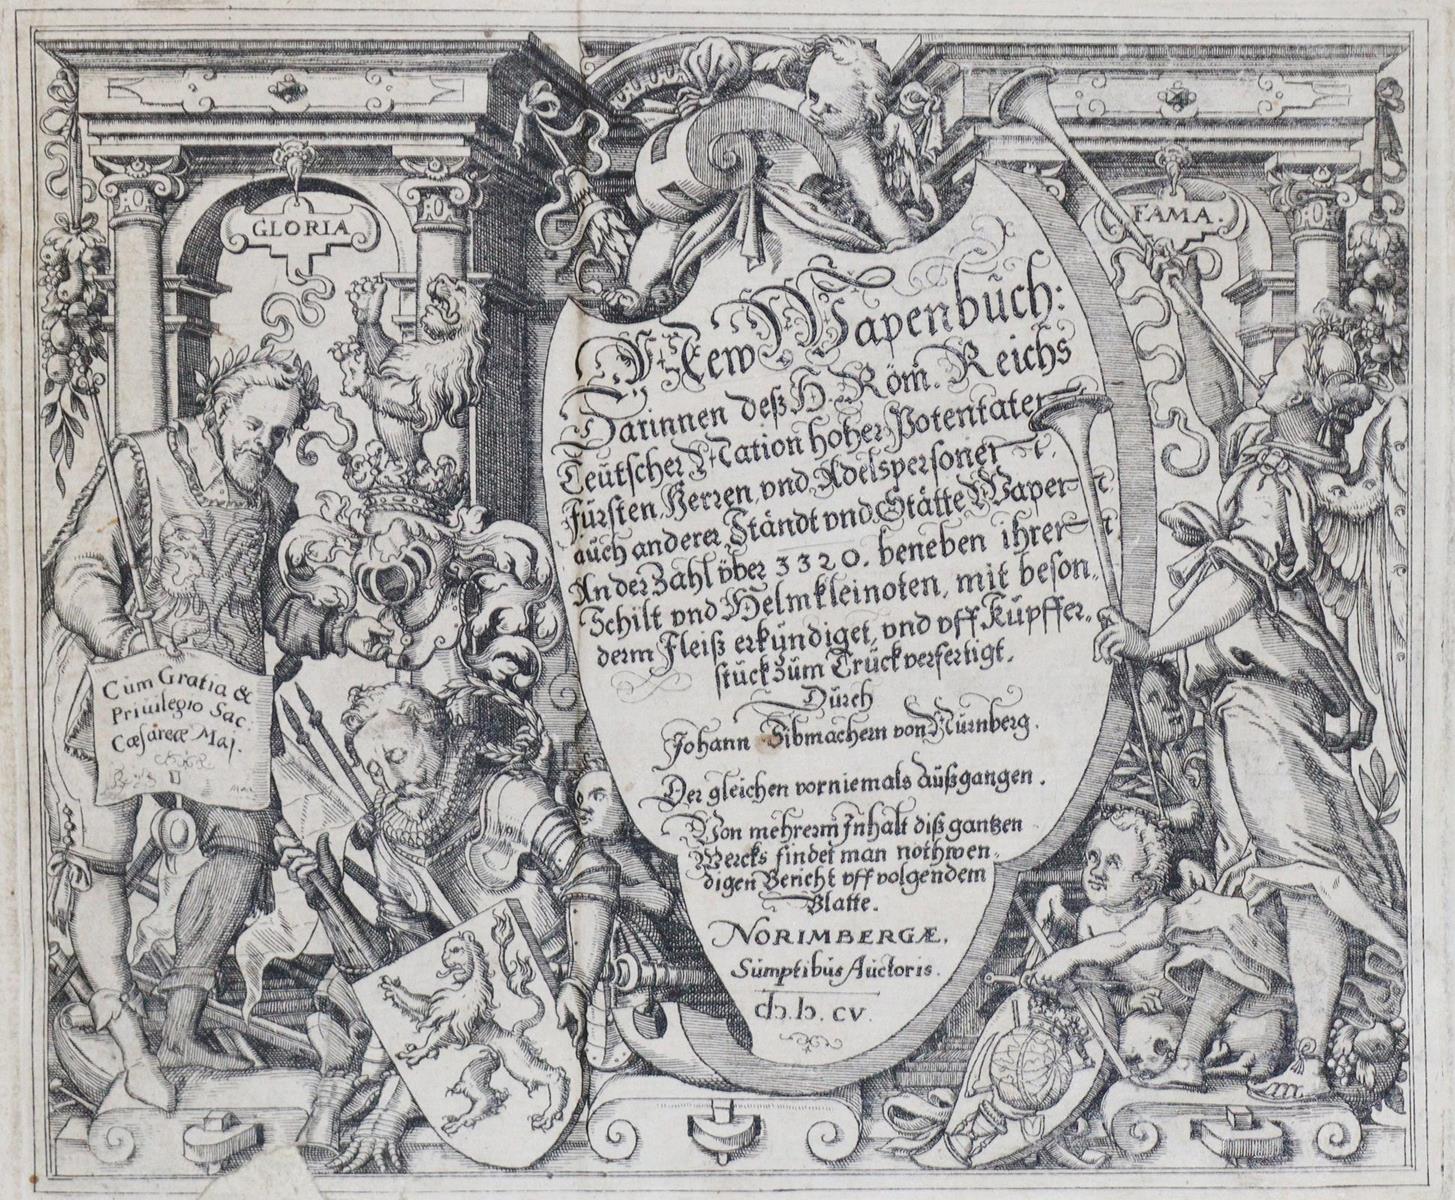 GLORIA
FAMA.
New Wapenbuch:
Darinnen deß H. Röm. Reichs
Teutscher Nation hoher Potentaten
Fürsten, Herren, vnd Adelspersonen
auch anderer Ständt vnd Stätte Wapen
An der Zahl vber 3320. beneben ihren
Schilt vnd Helmkleinoten, mit beson„
derm Fleiß erkundiget, vnd vff Kupffer„
stück zum Truck verfertigt.
Durch
Johann Sibmachern von Nürnberg.
Der gleichen vorniemals außgangen.
Von mehrerm Jnhalt diß gantzen
Wercks findet man nothwen„
digen Bericht vff volgendem
Blatte.
NORIMBERGÆ,
Sumptibus Auctoris.
CIↃ.IↃ.CV.
Cum Gratia &
Priuilegio Sac:
Cæsareæ Maj.